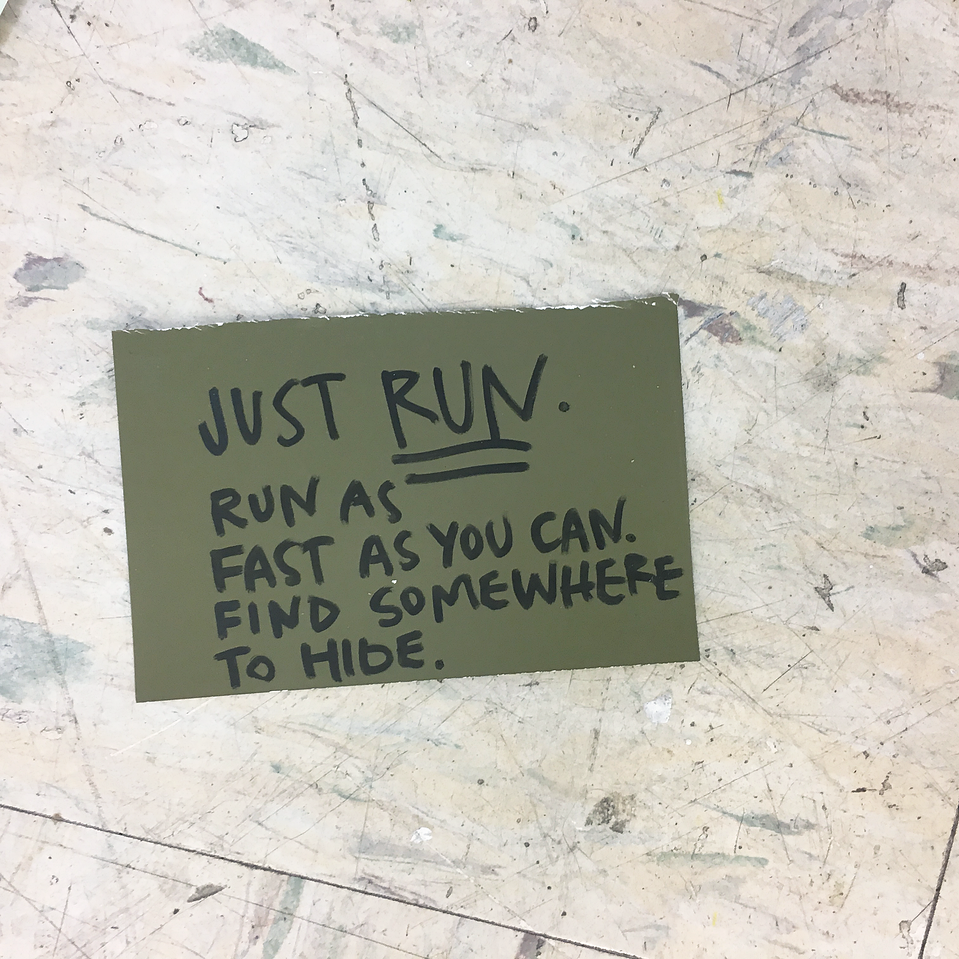 JUST RUN.
RUN AS
FAST AS YOU CAN.
FIND SOMEWHERE
TO HIDE.